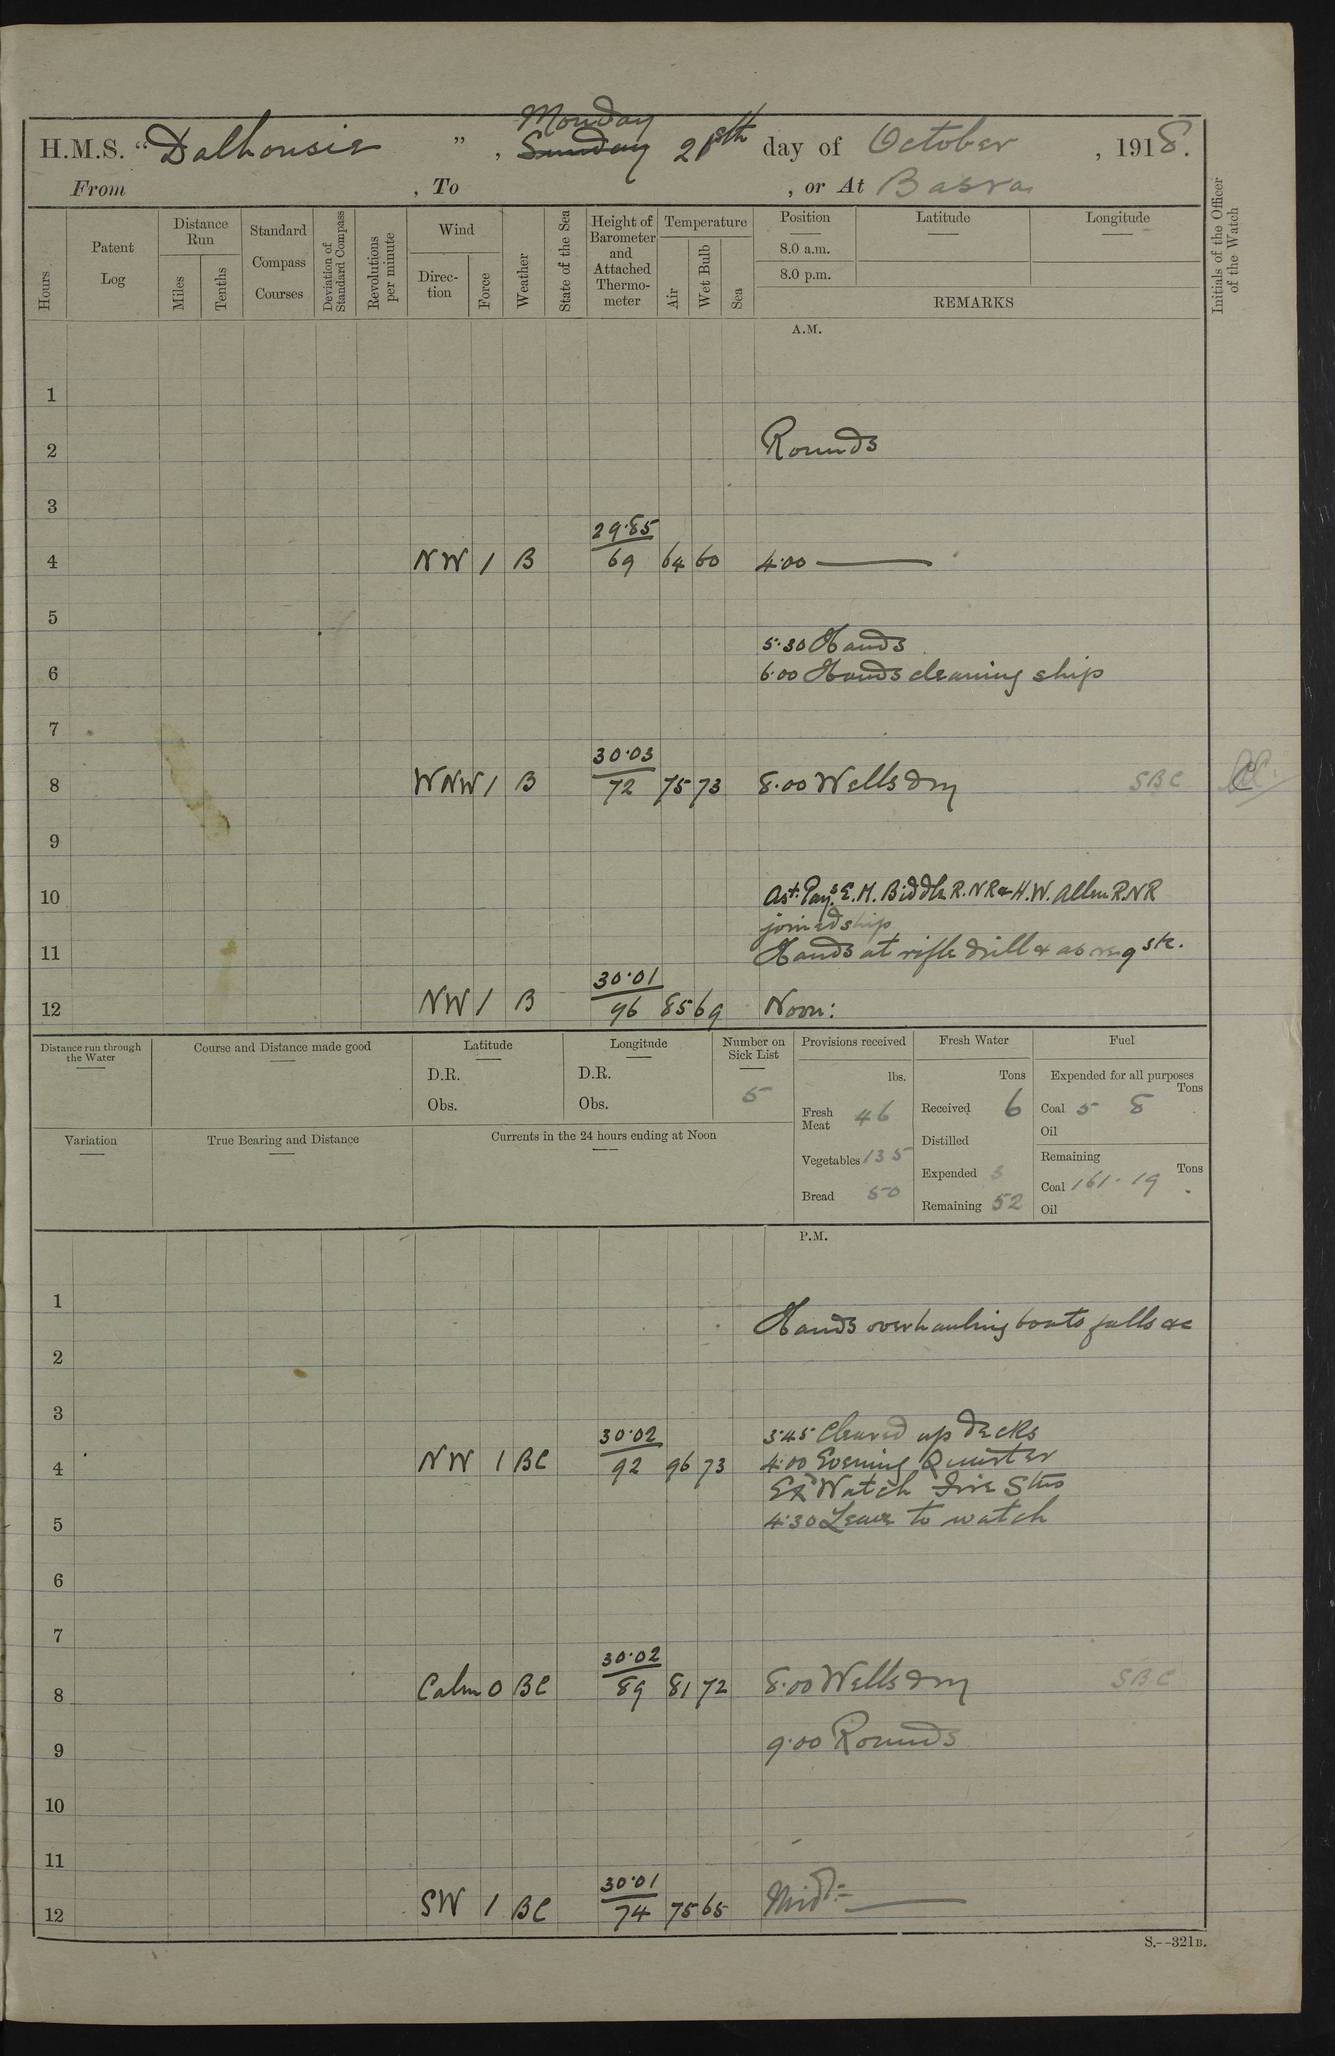 Monday
H.M.S. "Dalhousie", Sunday 21st day of October, 1918.
From , To , or At Basra
Hours
Patent Log
Distance Run
Miles
Tenths
Standard Compass Courses
Deviation of Standard Compass
Revolutions per minute
Wind
Direction
Force
Weather
State of the Sea
Height of Barometer and Attached Thermometer
Temperature
Air
Wet Bulb
Sea
Position
8.0 a.m.
8.0 p.m.
Latitude
Longitude
REMARKS
Initials of the Officer of the Watch
A.M.
1
2 Rounds
3
29.85
4 NW 1 B 69 64 60 4.00
5
5.30 Hands
6 6.00 Hands cleaning ship
7
30.03
8 WNW 1 B 72 75 73 8.00 Wells dry SBC
9
10 Ast. Pays E. M. Biddle R.N.R & H.W. Allen R.N.R
joined ship
11 Hands at rifle drill & as reqste.
30.01
12 NW 1 B 96 85 69 Noon:
Distance run through the Water
Course and Distance made good
Latitude
D.R.
Obs.
Longitude
D.R.
Obs.
Number on Sick List
5
Provisions received
lbs.
Fresh Meat 46
Vegetables 135
Bread 50
Fresh Water
Tons
Received 6
Distilled
Expended 3
Remaining 52
Fuel
Expended for all purposes
Tons
Coal 5 8
Oil
Remaining
Tons
Coal 161.19
Oil
Variation
True Bearing and Distance
Currents in the 24 hours ending at Noon
P.M.
1
Hands overhauling boats falls &c
2
3
30.02 3.45 Cleared up decks
4 NW 1 BC 92 96 73 4.00 Evening Quarter
Exd Watch Fire Stns
5 4.30 Leave to watch
6
7
30.02
8 Calm 0 BC 89 81 72 8.00 Wells dry SBC
9 9.00 Rounds
10
11
30.01
12 SW 1 BC 74 75 65 Midt:
S.--321B.